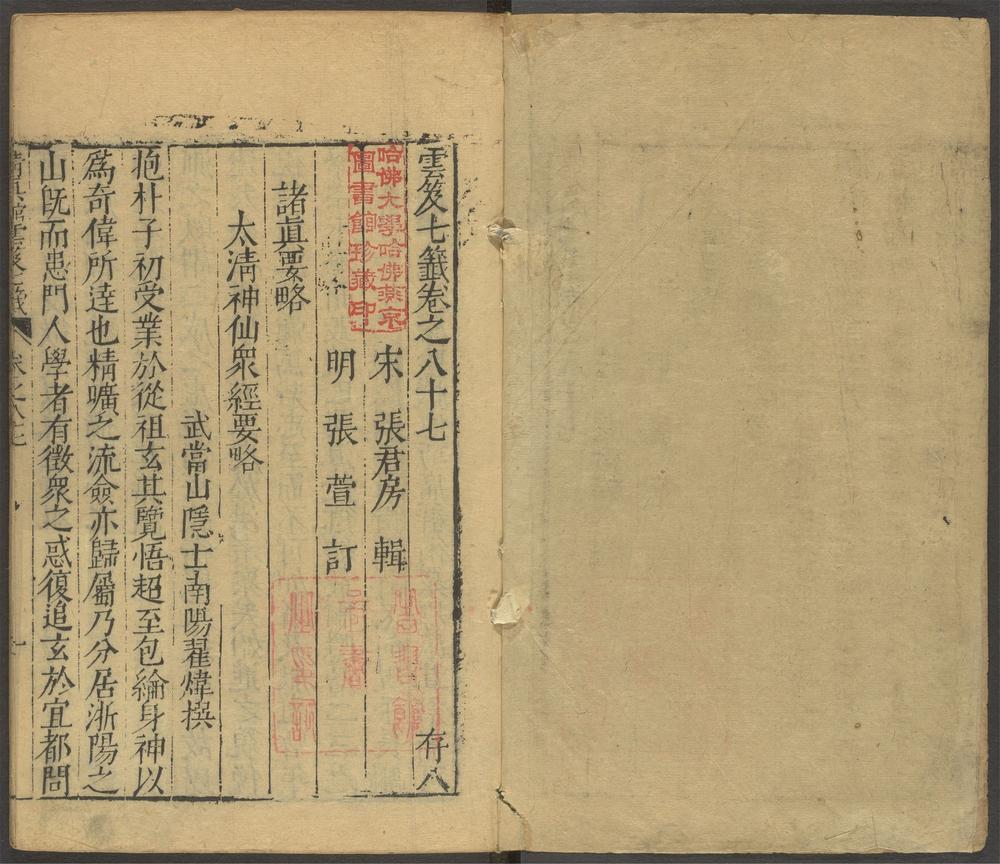 雲笈七籤卷之八十七 存八
哈佛大學哈佛燕京
圖書館珍藏印
宋 張君房 輯
明 張萱 訂
諸眞要略
太清神仙眾經要略
武當山隱士南陽翟煒撰
抱朴子初受業於從祖玄其覽悟超至包綸身神以
爲奇偉所達也精曠之流僉亦歸屬乃分居浙陽之
山既而患門人學者有徵眾之惑復追玄於宜都問
清眞館雲笈七籤 卷之八十七 一